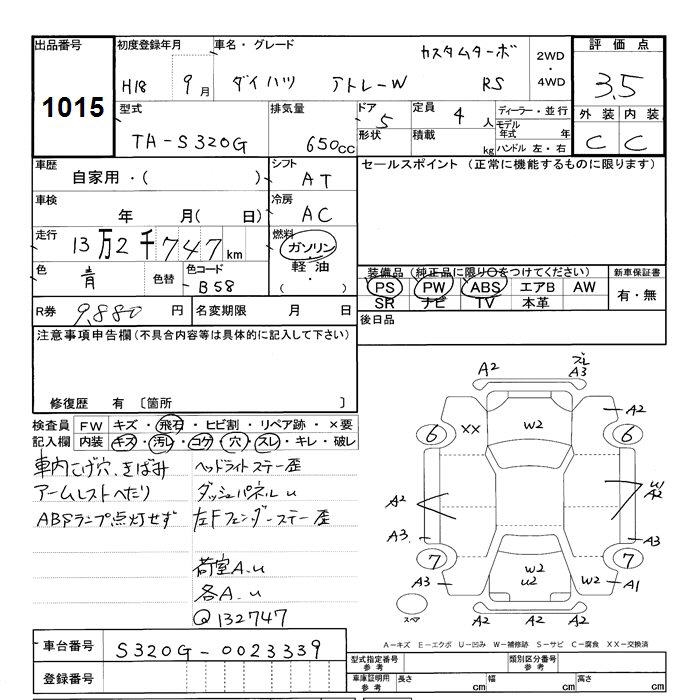 出品番号 初度登録年月 車名・グレード カスタムターボ 2WD・4WD 評価点
1015 H18 9月 ダイハツ アトレーW RS 3.5
型式 排気量 ドア 5 定員 4人 ディーラー・並行 外装 内装
TA-S320G 650cc 形状 積載 kg モデル年式 年 ハンドル 左・右 C C
車歴 自家用・( ) シフト AT セールスポイント (正常に機能するものに限ります)
車検 年 月( 日) 冷房 AC
走行 13万2千747km 燃料 ガソリン・軽油・( )
色 青 色替 色コード B58 装備品(純正品に限り○をつけてください) 新車保証書
PS PW ABS エアB AW 有・無
SR ナビ TV 本革
R券 9,880円 名変期限 月 日 後日品
注意事項申告欄(不具合内容等は具体的に記入して下さい)
修復歴 有 〔箇所 〕
検査員 FW キズ・飛石・ヒビ割・リペア跡・×要
記入欄 内装 キズ・汚レ・コゲ・穴・スレ・キレ・破レ
車内こげ穴、きばみ ヘッドライトステー歪
アームレストへたり ダッシュパネルu
ABSランプ点灯せず 左Fフェンダーステー歪
荷室A.u
各A.u
Q132747
A2 ズレ A3
A2
6 XX W2 6
A2 W A2
A3. A3
7 W2 7
A3 U2 W2 A1
A2 A2 A2
スペア
A-キズ E-エクボ U-凹み W-補修跡 S-サビ C-腐食 XX-交換済
車台番号 S320G-0023339
型式指定番号 参考 類別区分番号 参考
登録番号 車庫証明用 参考 長さ cm 幅 cm 高さ cm